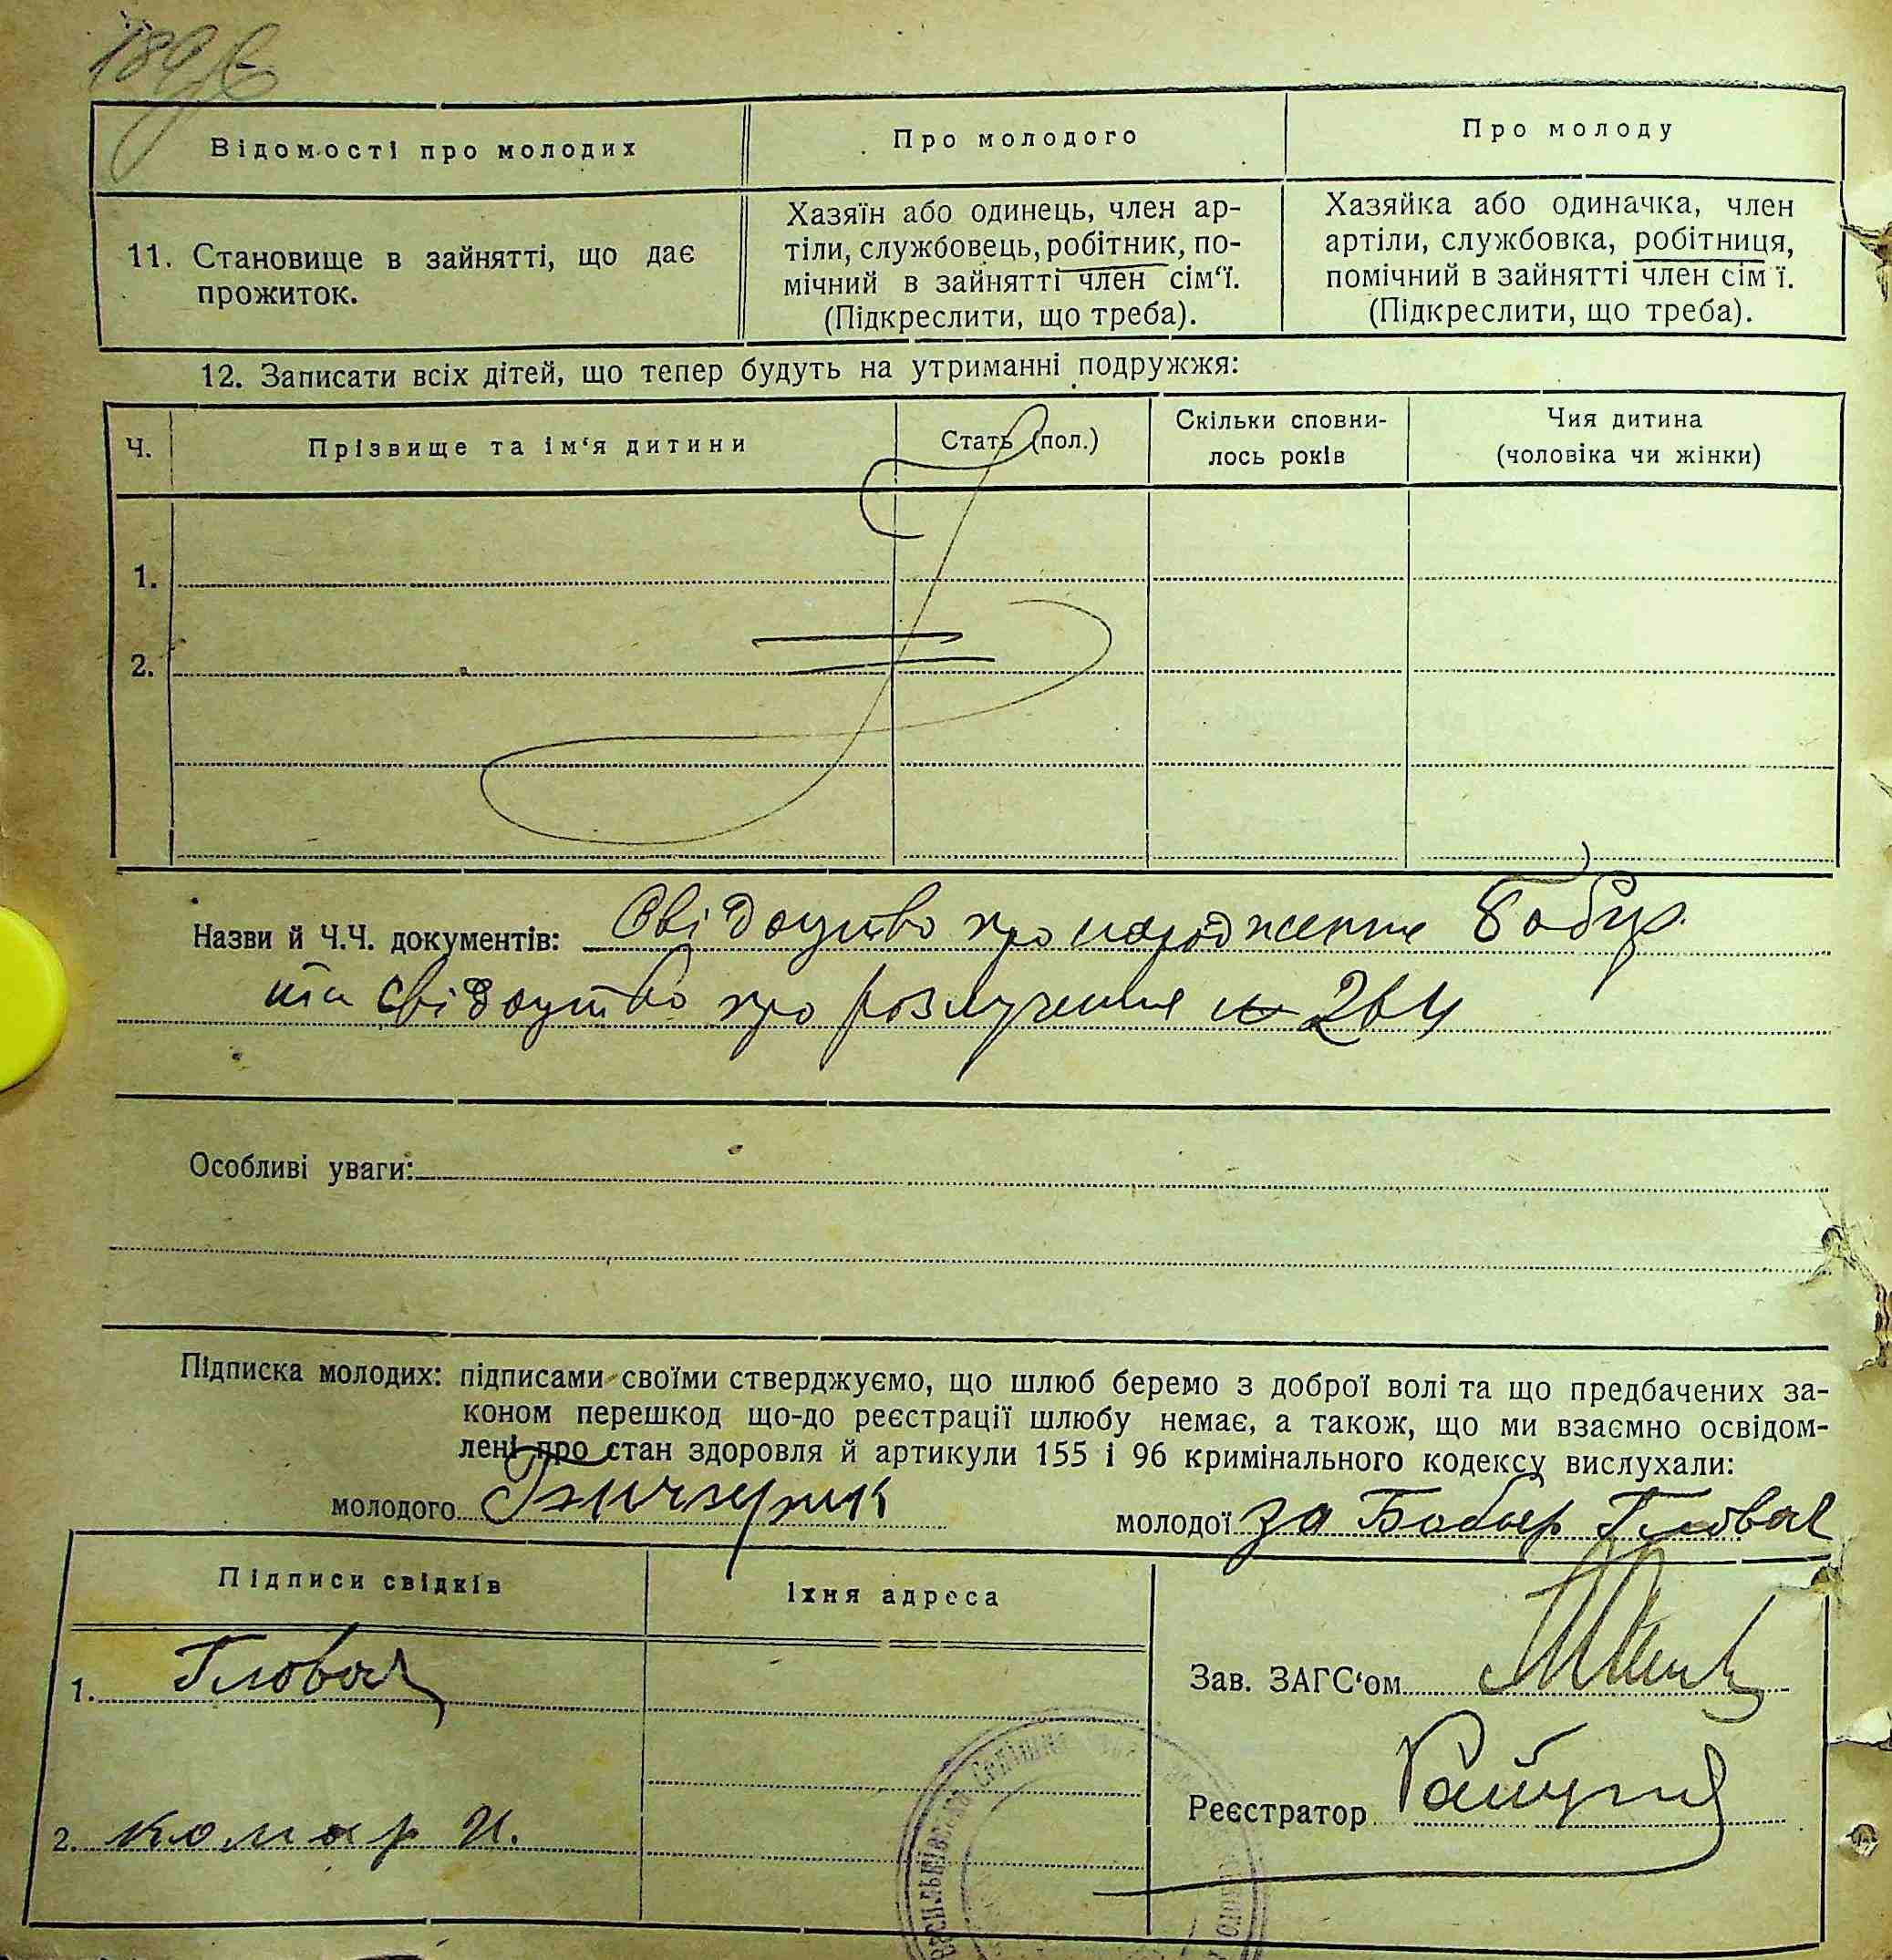 Відомості про молодих
Про молодого
Про молоду
11. Становище в зайнятті, що дає
прожиток.
Хазяїн або одинець, член ар-
тіли, службовець, робітник, по-
мічний в зайнятті член сім'ї.
(Підкреслити, що треба).
Хазяйка або одиначка, член
артіли, службовка, робітниця,
помічний в зайнятті член сім ї.
(Підкреслити, що треба).
12. Записати всіх дітей, що тепер будуть на утриманні подружжя:
Ч.
Прізвище та ім'я дитини
Стать (пол.)
Скільки сповни-
лось років
Чия дитина
(чоловіка чи жінки)
1.
2.
Назви й Ч.Ч. документів: Свідоцтво про народження
та свідоцтво про розлучення № 264
Особливі уваги:
Підписка молодих: підписами своїми стверджуємо, що шлюб беремо з доброї волі та що предбачених за-
коном перешкод що-до реєстрації шлюбу немає, а також, що ми взаємно освідом-
лені про стан здоровля й артикули 155 і 96 кримінального кодексу вислухали:
молодого
молодої за
Підписи свідків
Їхня адреса
1.
Зав. ЗАГС'ом
Реєстратор
2. Комар И.